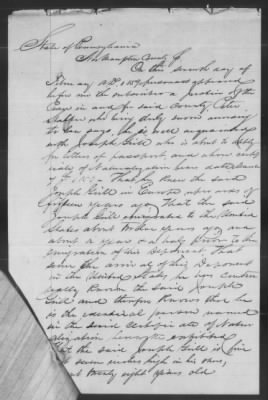 State of Pennsylvania
Northampton County SS
On this seventh day of
February A.D. 1889, personally appeared
before me the subscriber a Justice of the
Peace in and for said County, Peter
who being duly sworn according
to law says, he is well acquainted
with Joseph Grill who is about to apply
for letters of passport and whose certif-
icate of Naturalization bears date
That he knew the said
Joseph Grill in Europe upwards of
fifteen years ago, That the said
Joseph Grill emigrated to the United
States about years ago and
about a year or a half prior to the
emigration of this deponent. That
since the arrival of this Deponent
in the United States he has contin-
ually known the said Joseph
Grill and therefore knows that he
is the identical person named
in the said certificate of Natur
alization hereunto exhibited
that the said Joseph Grill is five
feet seven inches high in his shoes,
about twenty eight years old